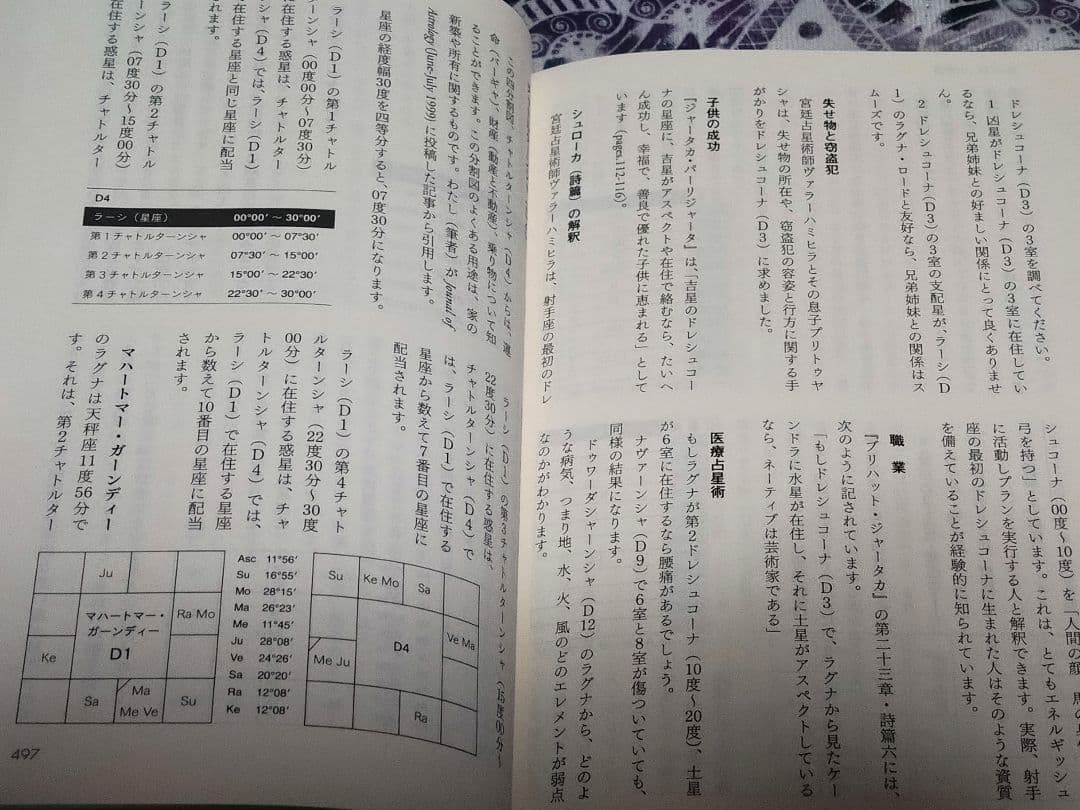 ドレシュコーナ（D3）の3室を調べてください。
1 凶星がドレシュコーナ（D3）の3室に在住してい
るなら、兄弟姉妹との好ましい関係にとって良くありませ
ん。
2 ドレシュコーナ（D3）の3室の支配星が、ラーシ（D
1）のラグナ・ロードと友好なら、兄弟姉妹との関係はス
ムーズです。
失せ物と窃盗犯
宮廷占星術師ヴァラーハミヒラとその息子プリトゥヤ
シャは、失せ物の所在や、窃盗犯の容姿と行方に関する手
がかりをドレシュコーナ（D3）に求めました。
子供の成功
『ジャータカ・パーリジャータ』は、「吉星のドレシュコー
ナの星座に、吉星がアスペクトや在住で絡むなら、たいへ
ん成功し、幸福で、善良で優れた子供に恵まれる」として
います（pages.112-116）。
シュローカ（詩篇）の解釈
宮廷占星術師ヴァラーハミヒラは、射手座の最初のドレ
シュコーナ（00度〜10度）を「人間の顔、馬の
弓を持つ」としています。これは、とてもエネルギッシュ
に活動しプランを実行する人と解釈できます。実際、射手
座の最初のドレシュコーナに生まれた人はそのような資質
を備えていることが経験的に知られています。
職業
『ブリハット・ジャータカ』の第二十三章・詩篇六には、
次のように記されています。
「もしドレシュコーナ（D3）で、ラグナから見たケー
ンドラに水星が在住し、それに土星がアスペクトしている
なら、ネーティブは芸術家である」
医療占星術
もしラグナが第2ドレシュコーナ（10度〜20度）、土星
が6室に在住するなら腰痛があるでしょう。
ナヴァーンシャ（D9）で6室と8室が傷ついていても、
同様の結果になります。
ドゥワーダシャーンシャ（D12）のラグナから、どのよ
うな病気、つまり地、水、火、風のどのエレメントが弱点
なのかがわかります。
この四分割図、チャトルターンシャ（D4）からは、運
命（バーギャ）、財産（動産と不動産）、乗り物について知
ることができます。この分割図のよくある用途は、家の
新築や所有に関するものです。わたし（筆者）がJournal of
Astrology (June-July 1999) に投稿した記事から引用します。
星座の経度幅30度を四等分すると、07度30分になります。
ラーシ（D1）の第1チャトル
ターンシャ（00度00分〜07度30分）
に在住する惑星は、チャトルターン
シャ（D4）では、ラーシ（D1）
で在住する星座と同じ星座に配当
されます。
ラーシ（D1）の第2チャトル
（07度30分〜15度00分）
在住する惑星は、チャトルター
D4
ラーシ（星座） 00°00′ 〜 30°00′
第1チャトルターンシャ 00°00′ 〜 07°30′
第2チャトルターンシャ 07°30′ 〜 15°00′
第3チャトルターンシャ 15°00′ 〜 22°30′
第4チャトルターンシャ 22°30′ 〜 30°00′
ラーシ（D1）の第3チャトルターンシャ（15度00分〜
22度30分）に在住する惑星は、
チャトルターンシャ（D4）で
は、ラーシ（D1）で在住する
星座から数えて7番目の星座に
配当されます。
ラーシ（D1）の第4チャト
ルターンシャ（22度30分〜30度
00分）に在住する惑星は、チャ
トルターンシャ（D4）では、
ラーシ（D1）で在住する星座
から数えて10番目の星座に配当
されます。
マハートマー・ガーンディー
のラグナは天秤座11度56分で
す。それは、第2チャトルター
Ju
マハートマー・
ガーンディー
D1
Ra Mo
Ke
Sa
Ma
Me Ve
Su
Asc 11°56′
Su 16°55′
Mo 28°15′
Ma 26°23′
Me 11°45′
Ju 28°08′
Ve 24°26′
Sa 20°20′
Ra 12°08′
Ke 12°08′
Su
Ke Mo
Sa
D4
Ve Ma
Me Ju
Ra
497